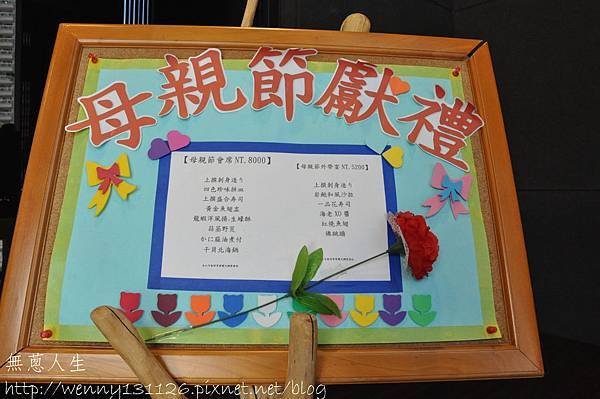 母親節獻禮
【母親節會席NT.8000】
上撰刺身造り
四色珍味拼皿
上撰盛合寿司
黃金魚翅盅
龍蝦洋風揚;生蠔酥
蒜茸野菜
かに蘇油煮付
干貝北海鍋
【母親節外帶宴 NT.5200】
上撰刺身造り
岩鮑和風沙拉
一品花寿司
海老XO醬
紅燒魚翅
佛跳牆
無蔥人生
http://wenny131126.pixnet.net/blog